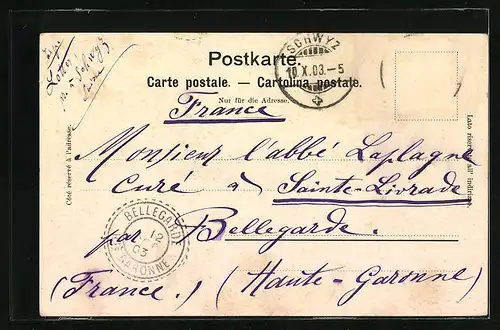 Postkarte.
Carte postale. — Cartolina postale.
Nur für die Adresse.
SCHWYZ
10.X.03.-5
France
Côté réservé à l'adresse.
Lato riservato all' indirizzo.
Monsieur l'abbé Laplagne
curé à Sainte-Livrade
par Bellegarde.
(France.) (Haute-Garonne)
BELLEGARDE
12
03
GARONNE